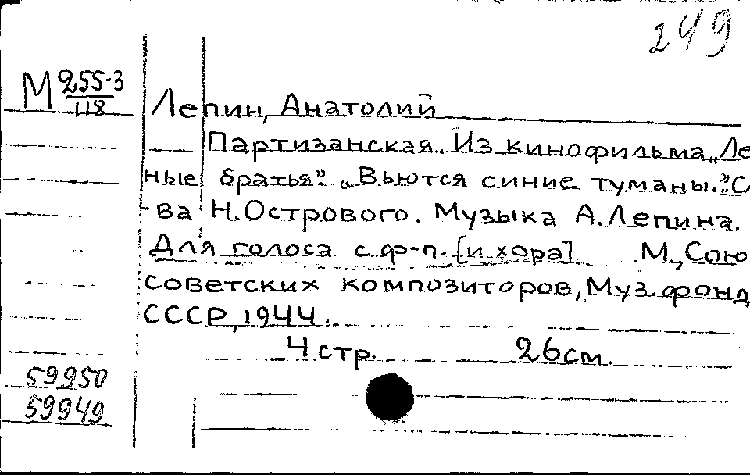 249
М 255-3
118
Лепин, Анатолий
Партизанская. Из кинофильма „Ле
ные братья". „Вьются синие туманы." С
ва Н. Острового. Музыка А. Лепина.
Для голоса с ф-п. [и хора] М., Сою
советских композиторов, Муз. фонд
СССР, 1944.
4 стр. 26 см.
59950
59949